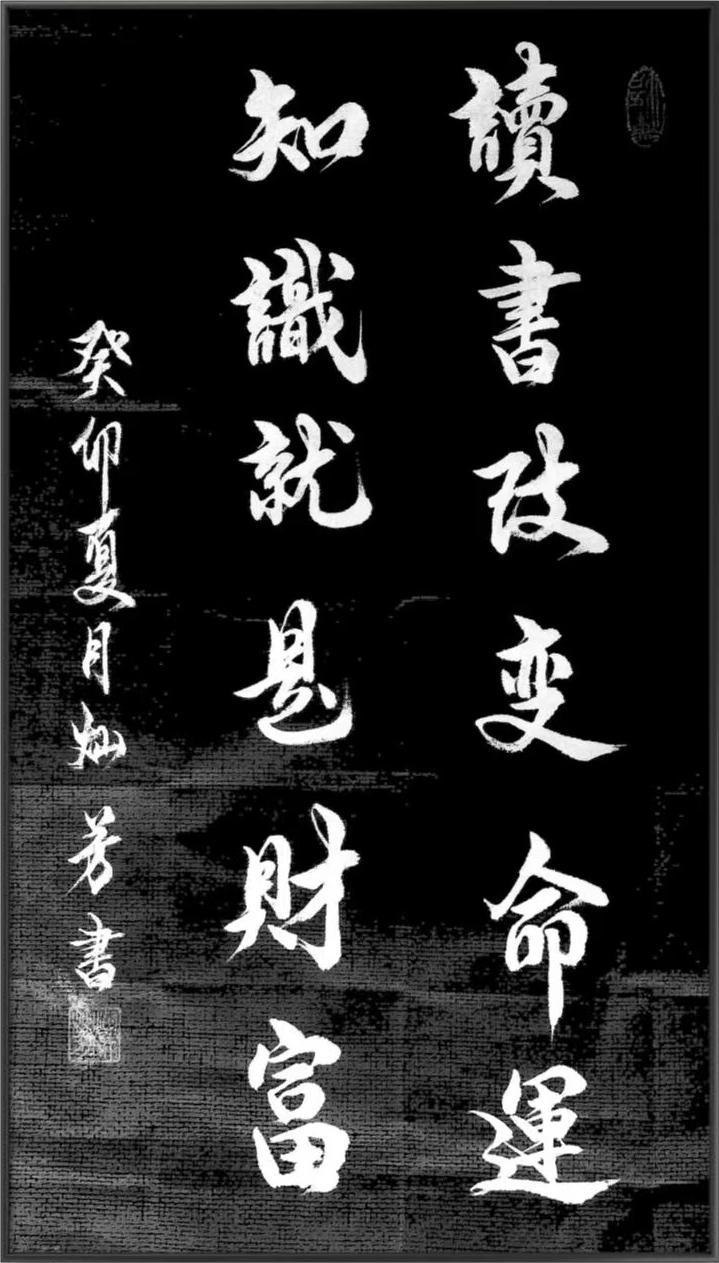 讀書改变命運
知識就是財富
癸卯夏月灿芳書